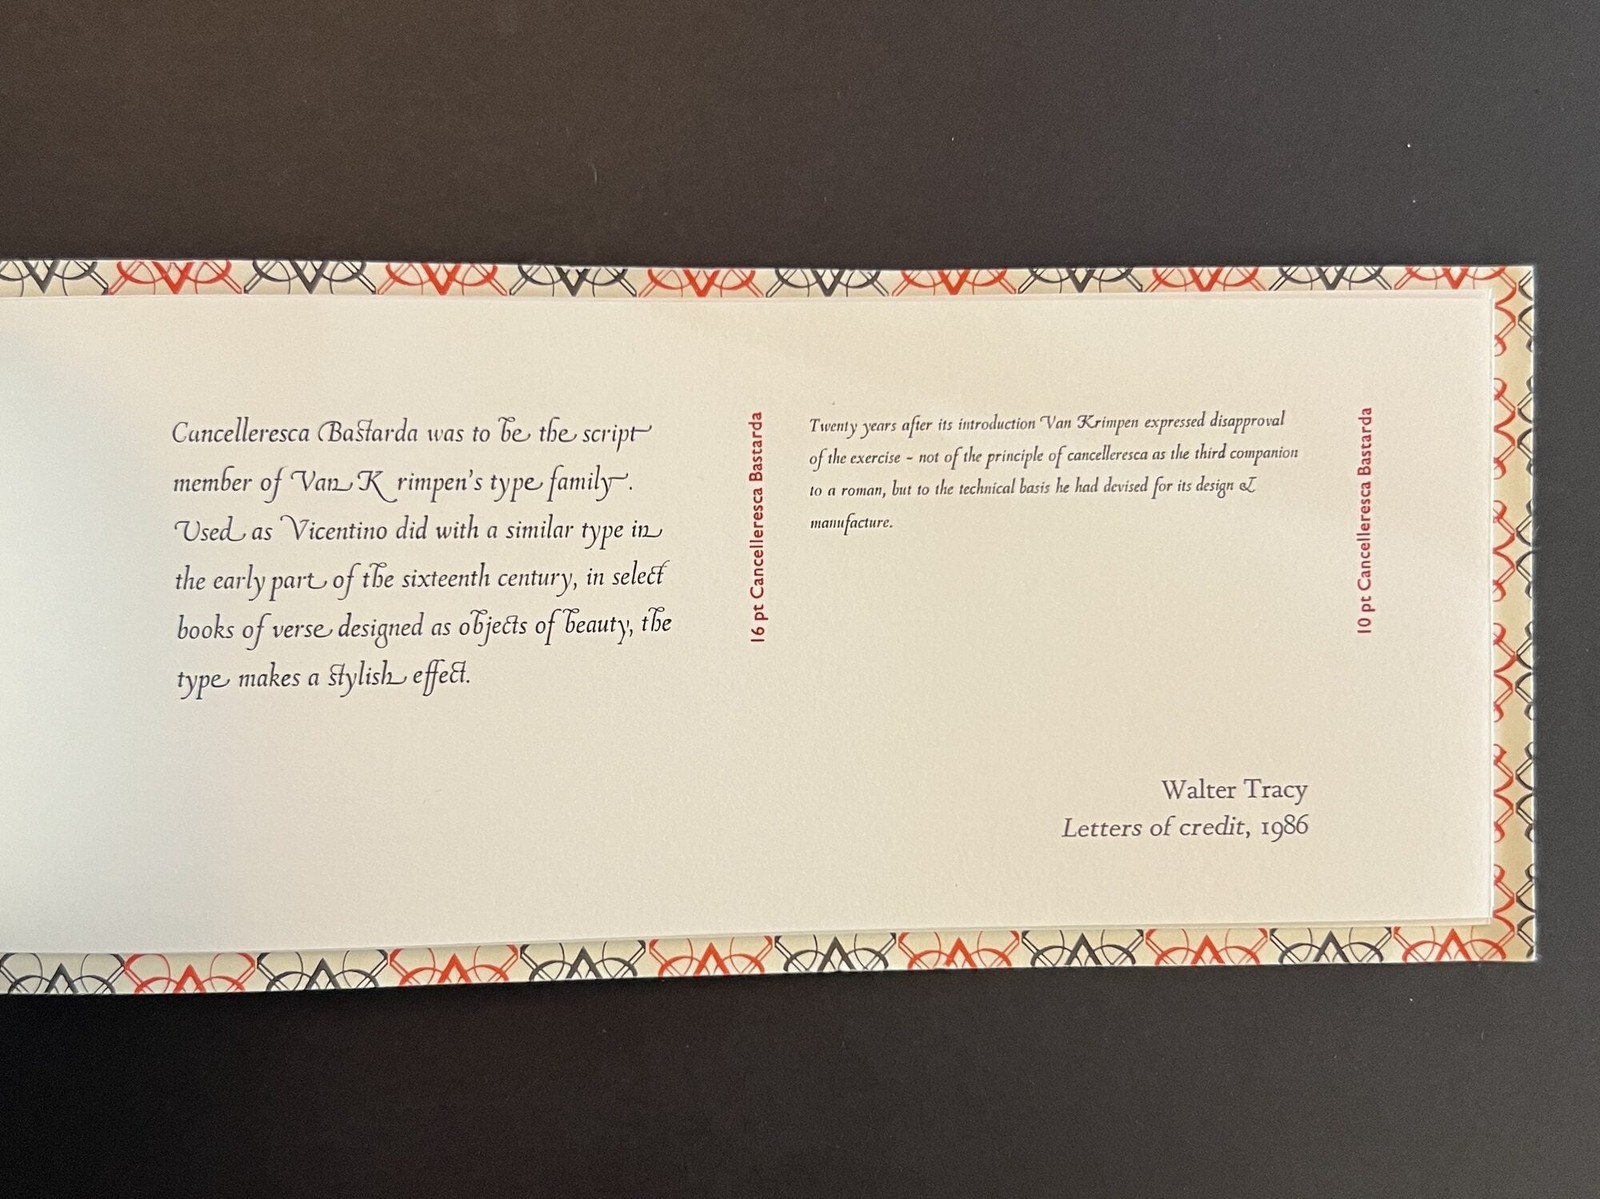 Cancelleresca Bastarda was to be the script
member of Van K rimpen's type family.
Used as Vicentino did with a similar type in
the early part of the sixteenth century, in select
books of verse designed as objects of beauty, the
type makes a stylish effect.
16 pt Cancelleresca Bastarda
Twenty years after its introduction Van Krimpen expressed disapproval
of the exercise – not of the principle of cancelleresca as the third companion
to a roman, but to the technical basis he had devised for its design &
manufacture.
10 pt Cancelleresca Bastarda
Walter Tracy
Letters of credit, 1986